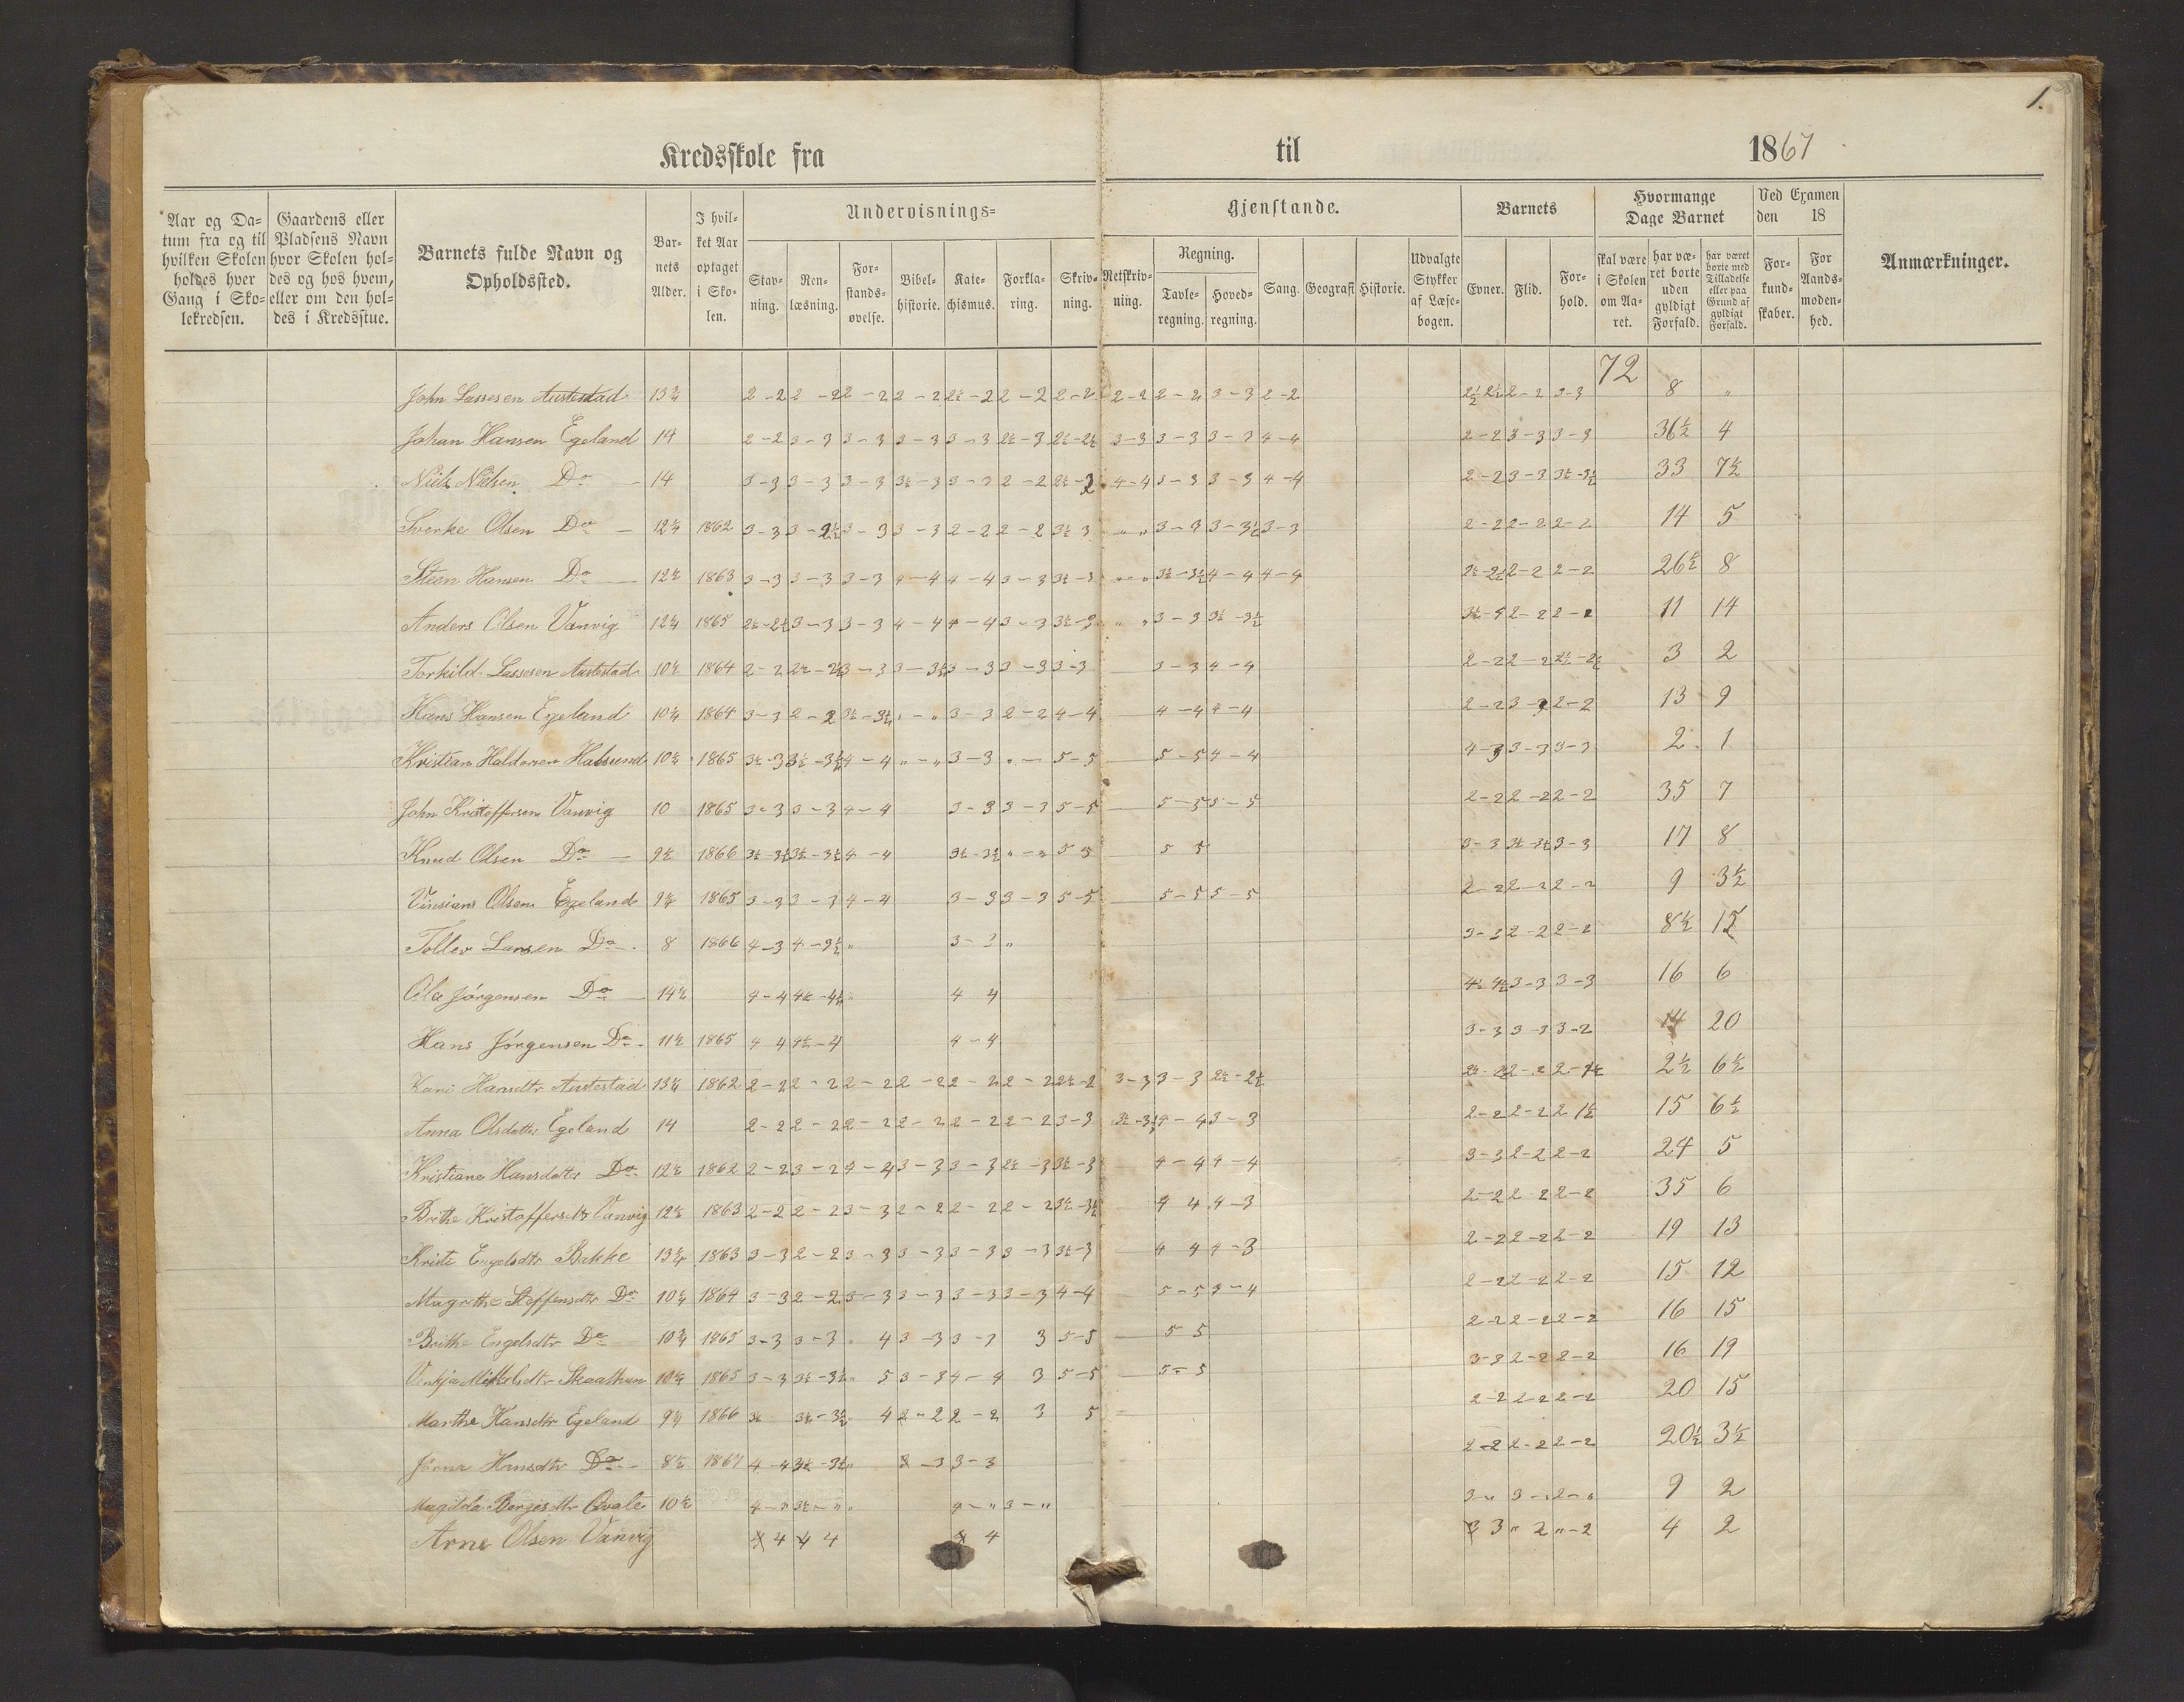 1.
Kredsskole fra til 1867
Aar og Datum fra og til hvilken Skolen holdes hver Gang i Skolekredsen.
Gaardens eller Pladsens Navn hvor Skolen holdes og hos hvem, eller om den holdes i Kredsstue.
Barnets fulde Navn og Opholdssted.
Barnets Alder.
I hvilket Aar optaget i Skolen.
Undervisnings= Gjenstande.
Stavning. Renlæsning. Forstandsøvelse. Bibelhistorie. Katechismus. Forklaring. Skrivning. Retskrivning. Regning. Tavleregning. Hovedregning. Sang. Geografi Historie. Udvalgte Stykker af Læsebogen.
Barnets Evner. Flid. Forhold.
Hvormange Dage Barnet skal være i Skolen om Aaret. har været borte uden gyldigt Forfald. har været borte med Tilladelse eller paa Grund af gyldigt Forfald.
Ved Examen den 18 For Kundskaber. For Aandsmodenhed.
Anmærkninger.
72
John Lassesen Austestad 2-2 2-2 2-2 2-2 2½-2 2-2 2-2 2-2 2-2 3-3 2-2 8 "
Johan Hansen Egeland 14 2-2 3-3 3-3 3-3 3-3 2½-3 2½-2½ 3-3 3-3 3-3 4-4 2-2 3-3 3-3 36½ 4
Niels Nilsen Do 14 3-3 3-3 3-3 3½-3 3-3 2-2 4-4 3-3 3-3 4-4 2-2 3-3 3½-3½ 33 7½
Sverke Olsen Do 12¼ 1862 3-3 3-2½ 3-3 3-3 2-2 2-2 3½ 3 " " 3-3 3-3½ 3-3 2-2 2-2 2-2 14 5
Steen Hansen Do 12½ 1863 3-3 3-3 3-3 4-4 4-4 3-3 3½-3 3½-3½ 4-4 4-4 2½-2½ 2-2 2-2 26½ 8
Anders Olsen Vanvig 12¼ 1865 2½-2½ 3-3 3-3 4-4 4-4 3-3 3½-3 3-3 3½-3½ 2-2 2-2 11 14
Torkild Lassesen Austestad 10½ 1864 2-2 2½-2½ 3-3 3-3½ 3-3 3-3 3-3 3-3 4-4 2-2 2-2 2½-2½ 3 2
Hans Hansen Egeland 10¼ 1864 3-3 2-2 3½-3½ "-" 3-3 2-2 4-4 4-4 4-4 2-2 3-3 2-2 13 9
Kristian Haldorsen 10½ 1865 4-4 "-" 3-3 5-5 5-5 4-4 4-3 3-3 3-3 2 1
John Kristoffersen Vanvig 10 1865 3-3 3-3 4-4 3-3 3-3 5-5 5-5 5-5 2-2 2-2 2-2 35 7
Knud Olsen Do 9½ 1866 3½-3½ 3½-3½ 4-4 3½-3½ "-" 5 5 5 5 3-3 3½-3½ 3-3 17 8
Olsen Egeland 1865 3-3 3-3 4-4 3-3 3-3 5-5 5-5 5-5 2-2 2-2 2-2 9 3½
Tollev Larsen Do 8 1866 4-3 4-3½ " 3-3 " 3-3 2-2 2-2 8½ 15
Ola Jörgensen Do 14½ 4-4 4½-4½ 4 4 4½ 4½ 3-3 3-3 16 6
Hans Jörgensen Do 11½ 1865 4 4 4½-4 4-4 3-3 3-3 3-2 14 20
Kari Hansdtr Austestad 1862 2-2 2-2 2-2 2-2 2-2 2-2 2½-2 3-3 3-3 2½-2½ 2-2 2½ 6½
Anna Olsdatter Egeland 14 2-2 2-2 2-2 2-2 2-2 2-2 3-3 3½-3½ 4-4 3-3 2-2 2-2 2 1½ 15 6½
Kristiane Hansdatter Do 12½ 1862 2-2 3-2 4-4 3-3 3-3 2½-3 3½-3 4-4 4-4 3-3 2-2 2-2 24 5
Brithe Kristoffersdtr Vanvig 12½ 1863 2-2 2-2 3-3 2-2 2-2 2-2 3½-3½ 4 4 4-3 2-2 2 2 2-2 35 6
Kristi Engelsdtr Bakke 1863 3-3 2-2 3-3 3-3 3-3 3-3 3½-3 4 4 4-3 2-2 2-2 2-2 19 13
Magrethe Steffensdtr Do 10¼ 1864 3-3 2-2 3-3 3-3 3-3 3-3 4-4 5-5 4-4 2-2 2-2 2-2 15 12
Brithe Engelsdtr Do 10¾ 1865 3-3 3-3 " 4 3-3 3-3 3 5-5 5 5 2-2 2-2 2-2 16 15
Mikkelsdtr 1865 3-3 3½-3½ " 5 3-3 4-4 3 5-5 5-5 3-3 2-2 2-2 16 19
Marthe Hansdtr Egeland 1866 3½ 3½-3½ " 4 2-2 2-2 3 5 2-2 2-2 2-2 20 15
Hansdtr Do 8½ 1867 4-4 3½-3½ " 3-3 3-3 2-2 2-2 2-2 20½ 3½
Magilda Børgesdtr Qvale 10½ 4-" 3½-" " 4-" 3-" 3-" 3-" 2-" 9 2
Arne Olsen Vanvig 4 4 4 4 3 " 2 "-2 4 2